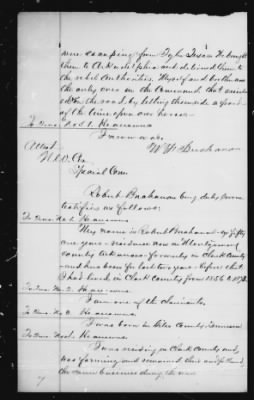 were escaping from Tyler Texas He brought
them to Arkadelphia and delivered them to
the rebel Authorities. Myself and brother were
the only ones in the Command that assisted
on the road by letting them ride a part
of the time upon our horses
To Int. No. 1. He answers
From no one.
W. H. Buchanan
Attest
Special Com
Robert Buchanan being duly sworn
testifies as follows:
To Int. No. 1. He answers
My name is Robert Buchanan age fifty
one years residence now in Montgomery
County Arkansas formerly in Clark County
and has been for last two years. Before that
I had lived in Clark County from 1856 to
To Int. No. 2. He answers
I am one of the Claimants
To Int. No. He answers
I was born in Giles County Tennessee
To Int. No. He answers
I was residing in Clark County and
was farming and remained there and followed
the same business during the war